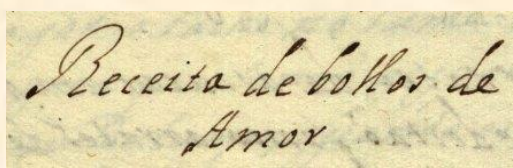 Receita de bollos de
Amor